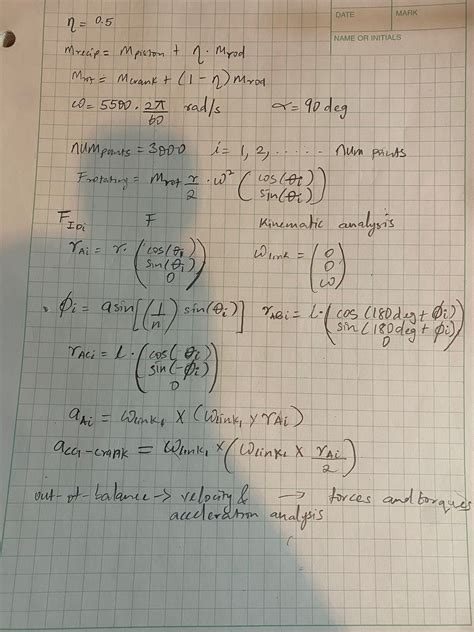 DATE
MARK
NAME OR INITIALS
η = 0.5
m recip = m piston + η · m rod
m rot = m crank + (1 - η) m rod
ω = 5500 · 2π/60 rad/s α = 90 deg
num points = 3000 i = 1, 2, ...... num points
F rotating = m rot r/2 · ω² (cos(θi) sin(θi))
F IDi F Kinematic analysis
r Ai = r · (cos(θi) sin(θi) 0) ω link = (0 0 ω)
φi = asin[(1/n) sin(θi)] r ABi = l · (cos(180deg + φi) sin(180deg + φi) 0)
r ACi = l · (cos( θi) sin(-φi) 0)
a Ai = ω link, × (ω link, × r Ai)
a CG-crank = ω link, × (ω link, × r Ai/2)
out-of-balance -> velocity & → forces and torques
acceleration analysis